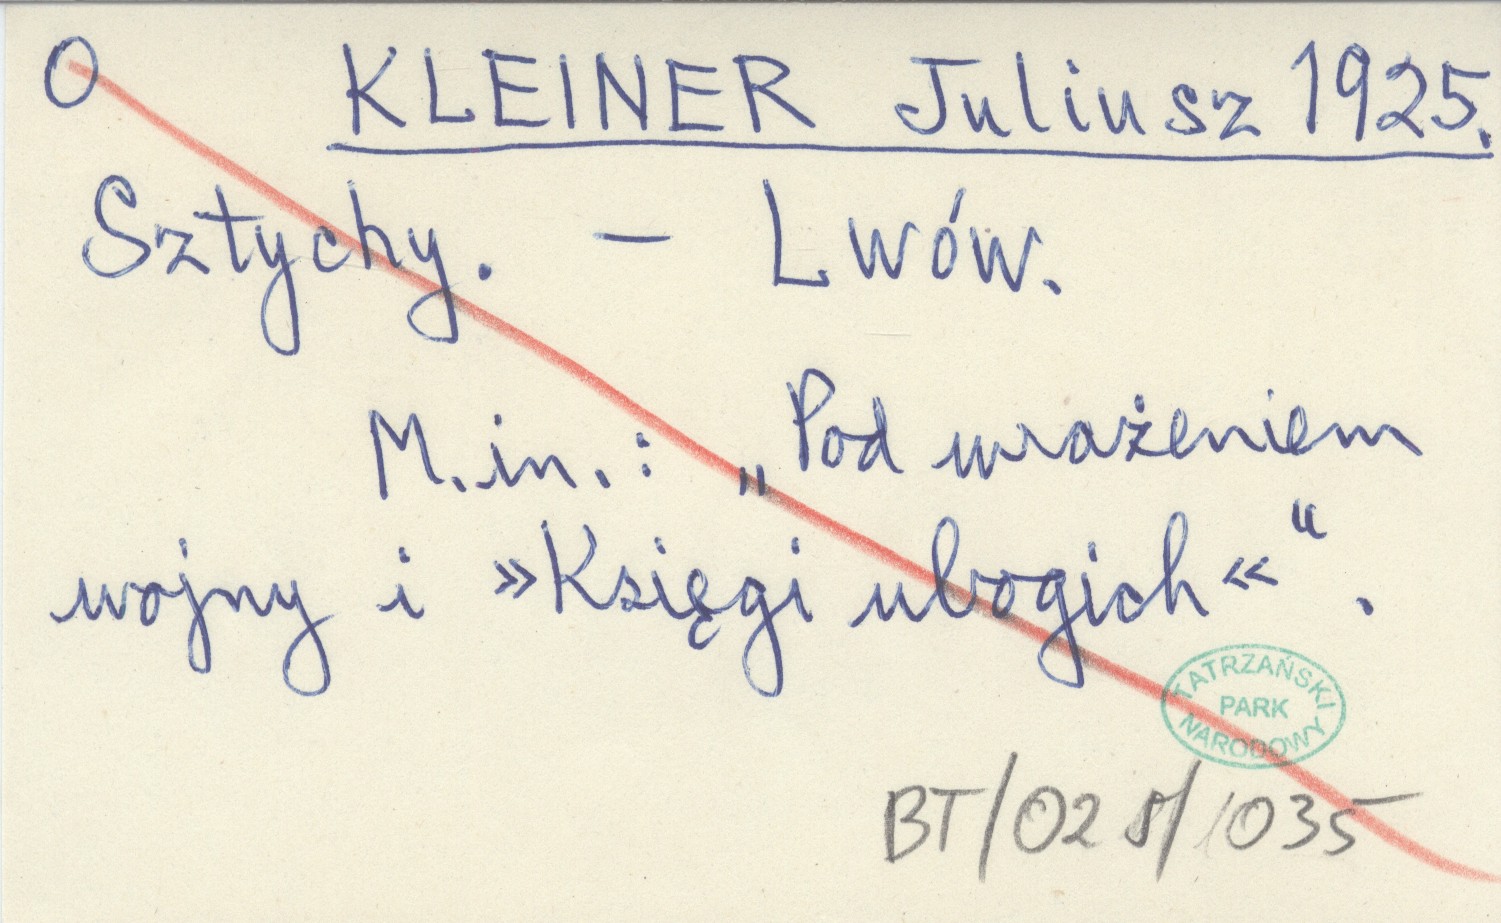 O KLEINER Juliusz 1925.
Sztychy. – Lwów.
M.in.: „Pod wrażeniem
wojny i »Księgi ubogich«“.
TATRZAŃSKI
PARK
NARODOWY
BT/02 /035